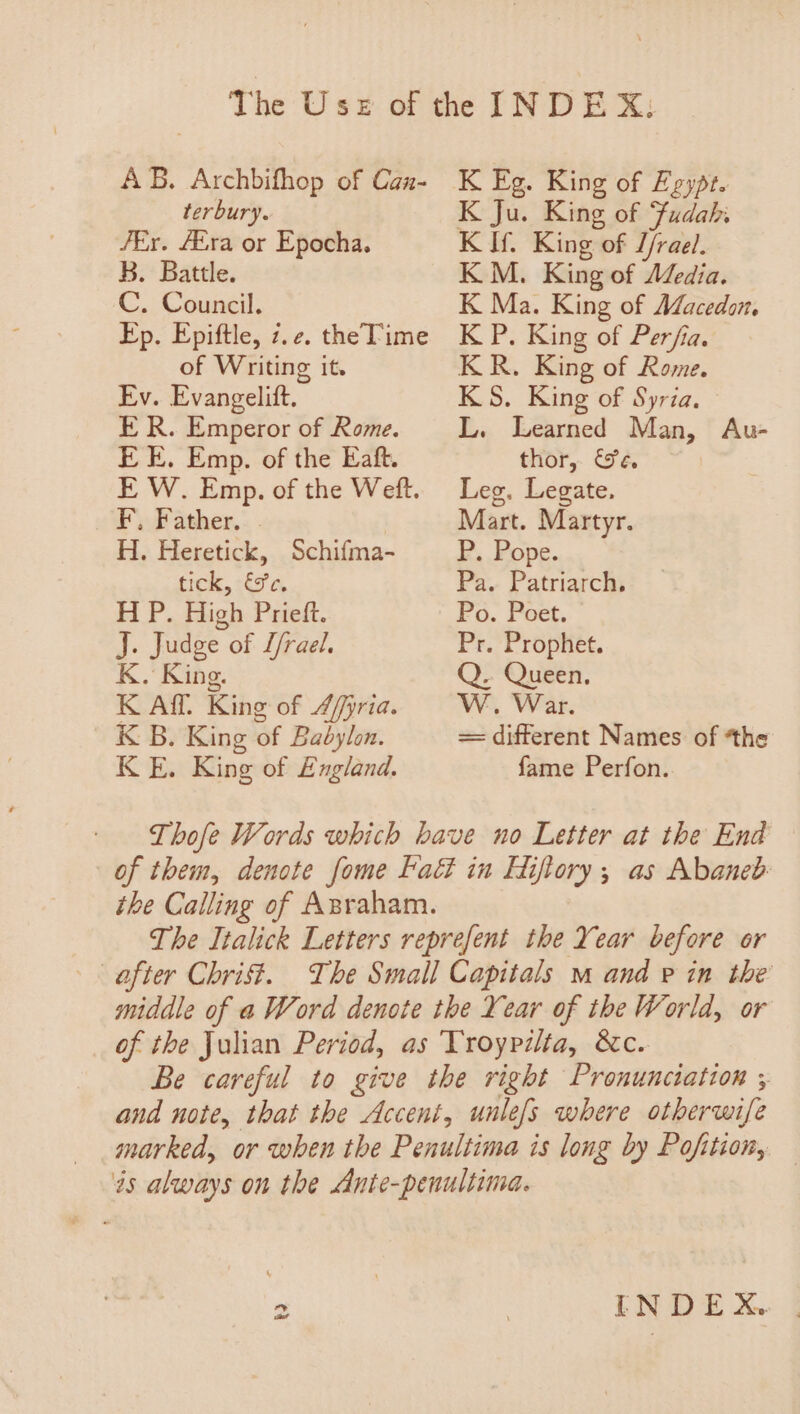 The Use of the INDEX.
AB. Archbiſhop of Can-
terbury.
Ær. Æra or Epocha.
B. Battle.
C. Council.
Ep. Epiſtle, i.e. theTime
of Writing it.
Ev. Evangeliſt.
E R. Emperor of Rome.
E E. Emp. of the Eaſt.
E W. Emp. of the Weſt.
F. Father.
H. Heretick, Schiſma-
tick, &c.
H P. High Prieſt.
J. Judge of Iſrael.
K. King.
K Aſſ. King of Aſſyria.
K B. King of Babylon.
K E. King of England.
K Eg. King of Egypt.
K Ju. King of Judah.
K Iſ. King of Iſrael.
K M. King of Media.
K Ma. King of Macedon.
K P. King of Perſia.
K R. King of Rome.
K S. King of Syria.
L. Learned Man, Au-
thor, &c.
Leg. Legate.
Mart. Martyr.
P. Pope.
Pa. Patriarch.
Po. Poet.
Pr. Prophet.
Q. Queen.
W. War.
= different Names of the
ſame Perſon.
Thoſe Words which have no Letter at the End
of them, denote ſome Fact in Hiſtory; as Abaneb
the Calling of Abraham.
The Italick Letters repreſent the Year before or
after Chriſt. The Small Capitals M and P in the
middle of a Word denote the Year of the World, or
of the Julian Period, as Troypilta, &c.
Be careful to give the right Pronunciation;
and note, that the Accent, unleſs where otherwiſe
marked, or when the Penultima is long by Poſition,
is always on the Ante-penultima.
2
INDEX.